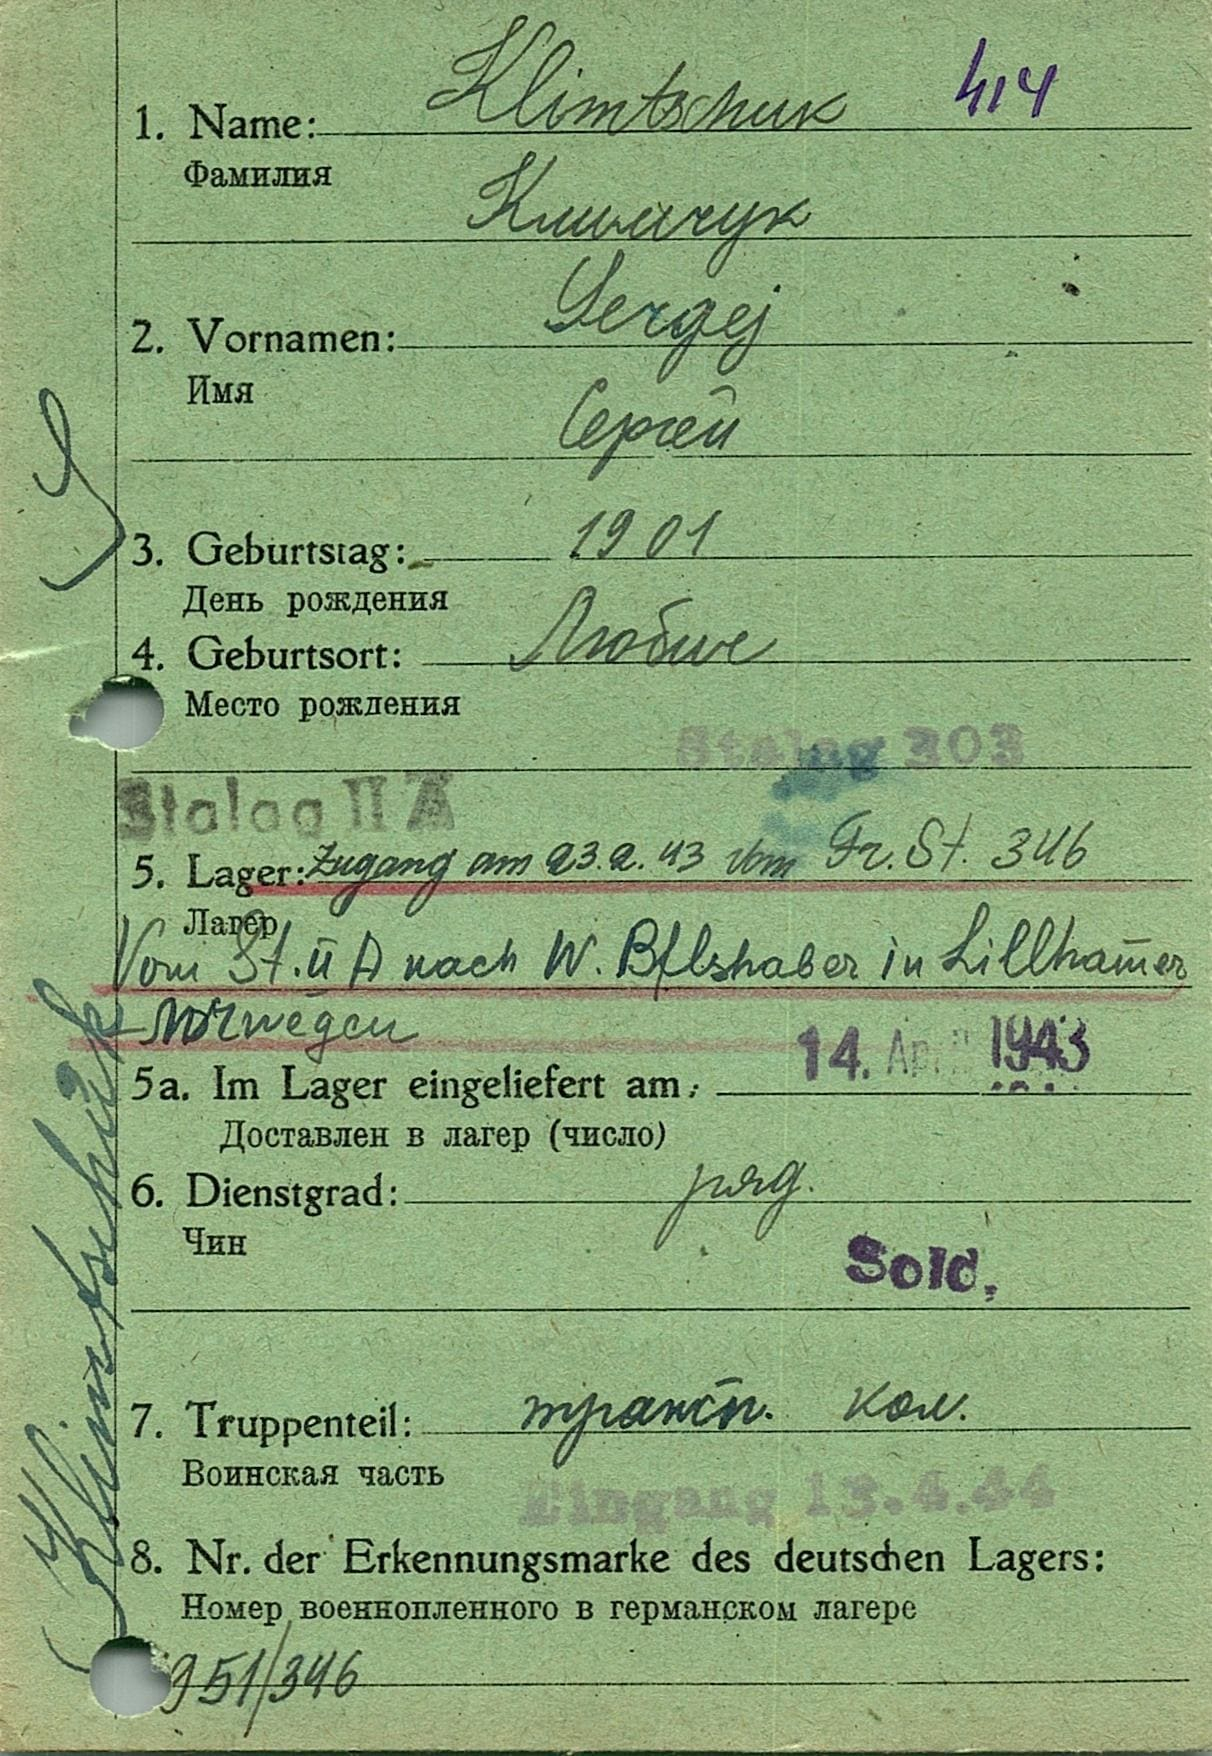 Klimtschuk 414
1. Name:
Фамилия
Климчук
Sergej
2. Vornamen:
Имя
Сергей
3. Geburtstag: 1901
День рождения
4. Geburtsort: Любиче
Место рождения
Stalag 303
Stalag II A
5. Lager: Zugang am 23.2.43 vom Fr. St. 346
Лагер
Vom St. II A nach W. Bflshaber in Lillham̄er
Norwegen
14. April 1943
5a. Im Lager eingeliefert am:
Доставлен в лагер (число)
6. Dienstgrad: ряд.
Чин
Sold.
7. Truppenteil: трансп. кол.
Воинская часть
Eingang 13.4.44
8. Nr. der Erkennungsmarke des deutschen Lagers:
Номер военнопленного в германском лагере
951/346
Klimtschuk